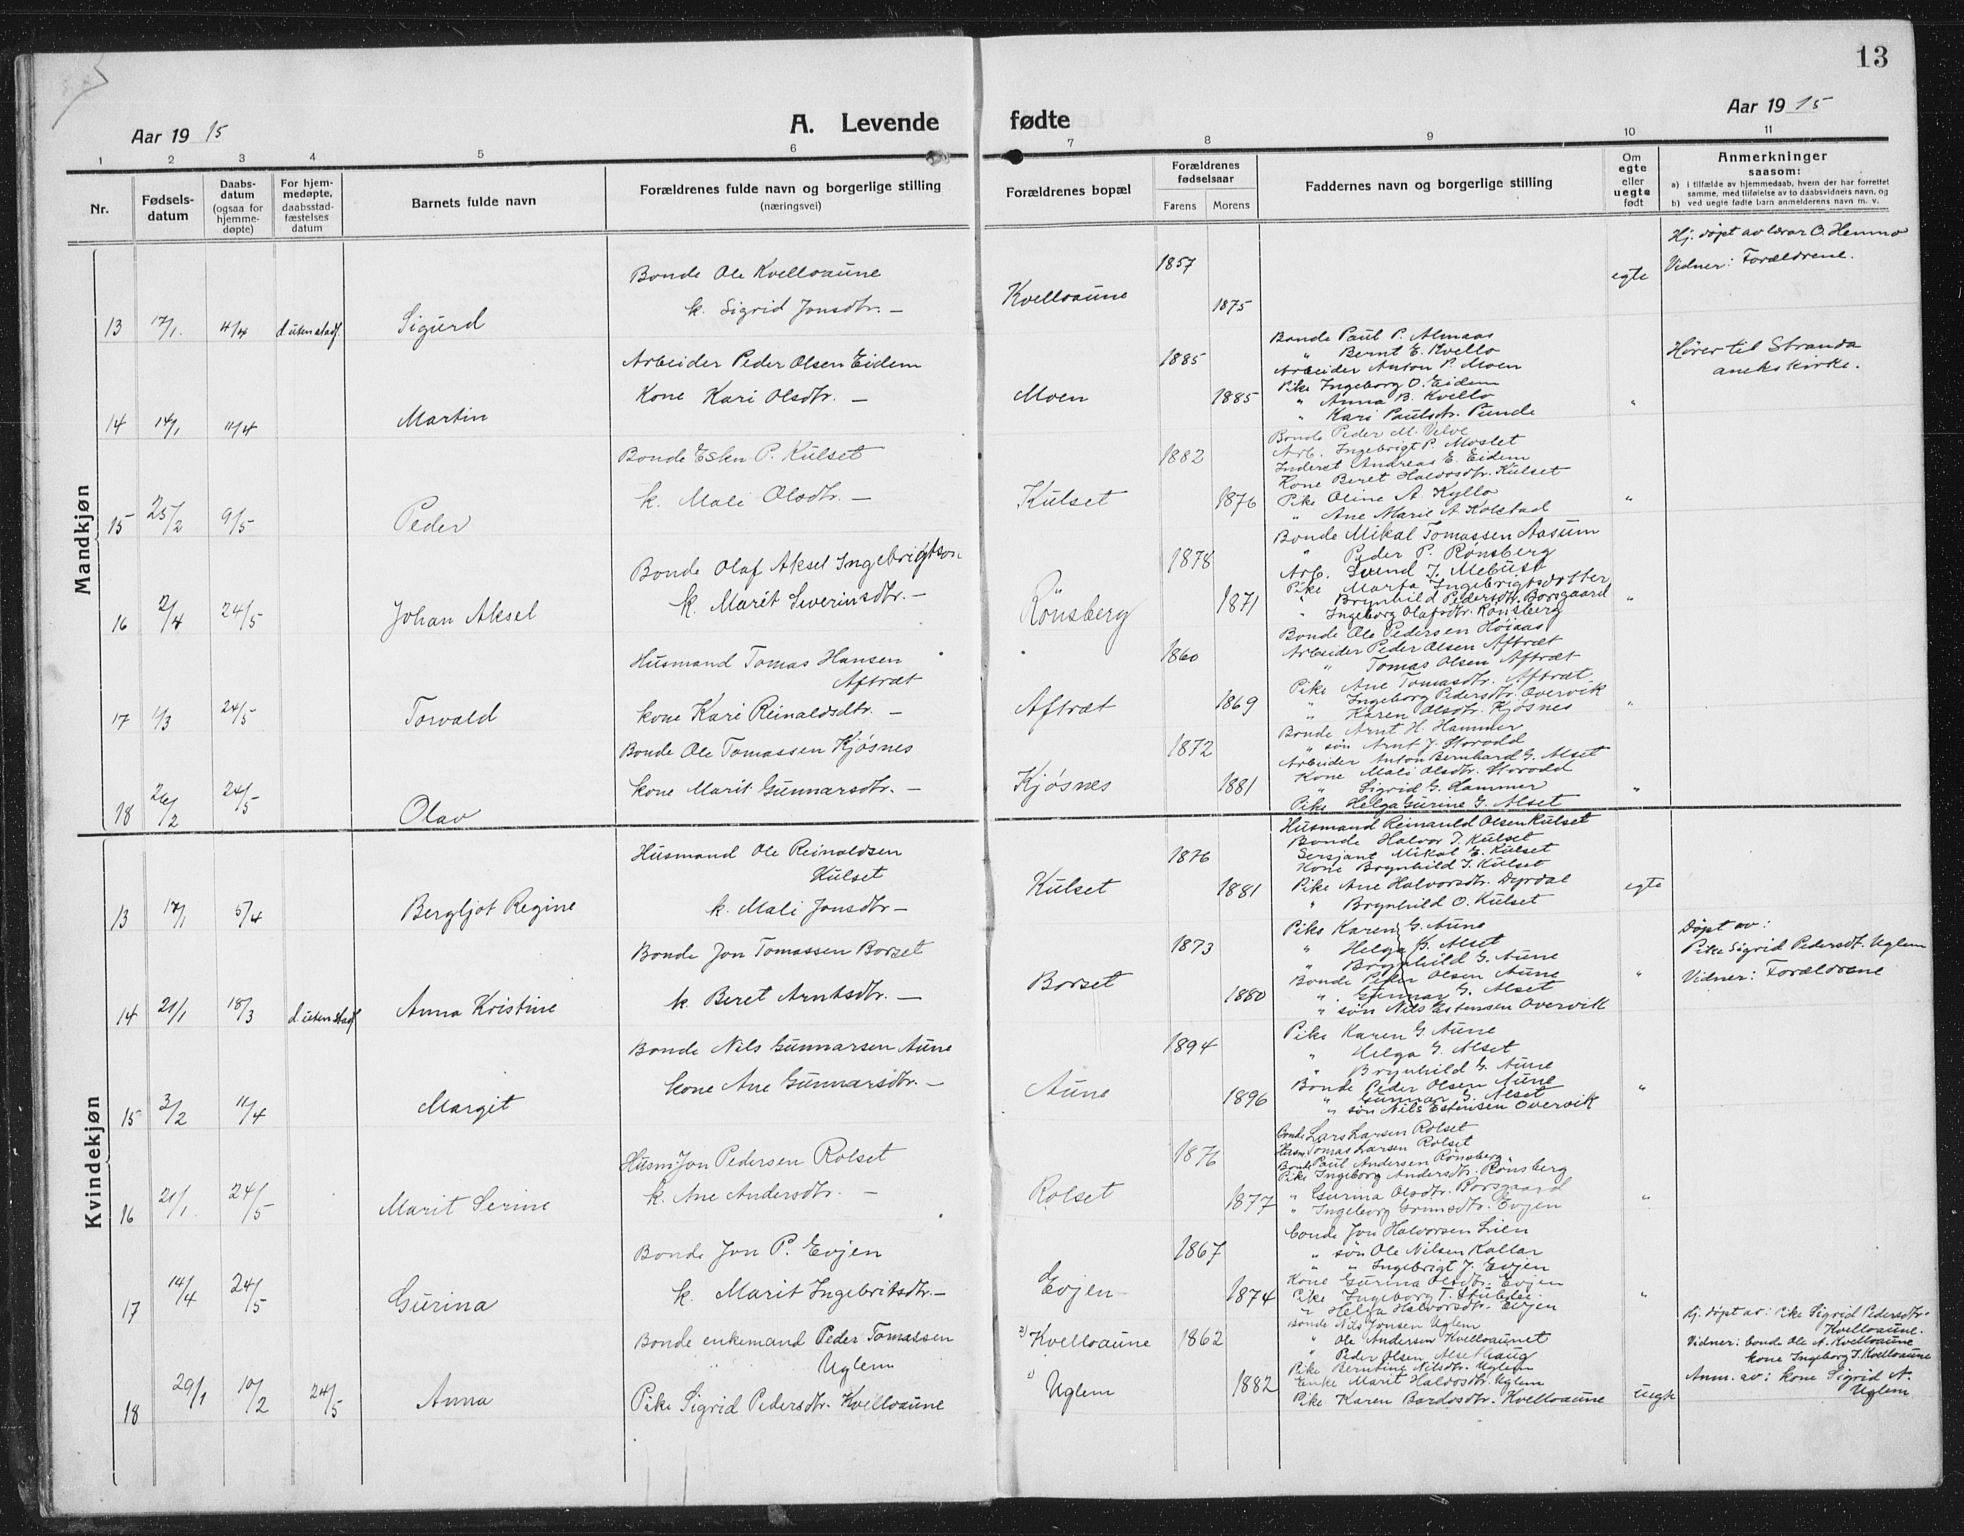 13
Aar 1915
A. Levende
fødte
Aar 1915
1 2 3 4 5 6 7 8 9 10 11
Nr.
Fødsels-
datum
Daabs-
datum
(ogsaa for
hjemme-
døpte)
For hjem-
medøpte,
daabsstad-
fæstelses
datum
Barnets fulde navn
Forældrenes fulde navn og borgerlige stilling
(næringsvei)
Forældrenes bopæl
Forældrenes
fødselsaar
Farens Morens
Faddernes navn og borgerlige stilling
Om
egte
eller
uegte
født
Anmerkninger
saasom:
a) i tilfælde av hjemmedaab, hvem der har forrettet
samme, med tilføielse av to daabsvidners navn, og
b) ved uegte fødte barn anmelderens navn m. v.
Mandkjøn
13 17/1. 4/4 d. uten stadf. Sigurd
Bonde Ole Kvelloaune
k. Sigrid Jonsdtr. —
Kvelloaune
1857
1875
egte
Hj. døpt av lærar O. Hemmo
Vidner: Forældrene.
14 14/1 11/4 Martin
Arbeider Peder Olsen Eidem
Kone Kari Olsdtr. —
Moen
1885
1885
Bonde Paul P. Almaas
" Bernt E. Kvello
Arbeider Anton P. Moen
Pike Ingeborg O. Eidem
" Anna B. Kvello
" Kari Paulsdtr. Punde
"
Hører til Stranda
anekskirke.
15 25/2 9/5 Peder
Bonde Esten P. Kulset
k. Mali Olsdtr. —
Kulset
1882
1876
Bonde Peder M. Velve
Arb. Ingebrigt P. Moslet
Inderst Andreas E. Eidem
Kone Beret Haldosdtr. Kulset
Pike Oline A. Kyllo
" Ane Marie A. Kolstad
"
16 2/4 24/5 Johan Aksel
Bonde Olaf Aksel Ingebrigtson
k. Marit Severinsdtr. —
Rønsberg
1878
1871
Bonde Mikal Tomassen Aasum
" Peder P. Rønsberg
Arb. Svend J. Mebust
Pike Marta Ingebrigtsdotter
" Brynhild Pedersdtr. Borsgaard
" Ingeborg Olafsdtr. Rønsberg
"
17 1/3 24/5 Torvald
Husmand Tomas Hansen
Aftræt
kone Kari Reinaldsdtr. —
Aftræt
1860
1869
Bonde Ole Pedersen Høiaas
Arbeider Peder Olsen Aftræt
" Tomas Olsen Aftræt
Pike Ane Tomasdtr. Aftræt
" Ingeborg Pedersdtr. Overvik
" Karen Olsdtr. Kjøsnes
"
18 26/2 24/5 Olav
Bonde Ole Tomassen Kjøsnes
kone Marit Gunnarsdtr. —
Kjøsnes
1872
1881
Bonde Arnt H. Hammer
" søn Arnt J. Storodd
Arbeider Anton Bernhard G. Alset
Kone Mali Olsdtr. Storodd
" Sigrid G. Hammer
Pike Helga Gurine G. Alset
"
Kvindekjøn
13 17/1 5/4 Bergljot Regine
Husmand Ole Reinaldsen
Kulset
k. Mali Jonsdtr —
Kulset
1876
1881
Husmand Reinauld Olsen Kulset
Bonde Halvor J. Kulset
Sersjant Mikal E. Kulset
Kone Brynhild J. Kulset
Pike Ane Halvorsdtr. Dyrdal
" Brynhild O. Kulset
egte
14 21/1 18/3 d. uten stadf. Anna Kristine
Bonde Jon Tomassen Borset
k. Beret Arntsdtr. —
Borset
1873
1880
Pike Karen G. Aune
" Helga G. Alset
" Brynhild G. Aune
Bonde Peder Olsen Aune
" Gunnar G. Alset
" søn Nils Estensen Overvik
"
Døpt av:
Pike Sigrid Pedersdt. Uglem
Vidner: Forældrene
15 3/2 11/4 Margit
Bonde Nils Gunnarsen Aune
kone Ane Gunnarsdtr. —
Aune
1894
1896
Pike Karen G. Aune
" Helga G. Alset
" Brynhild G. Aune
Bonde Peder Olsen Aune
" Gunnar G. Alset
" søn Nils Estensen Overvik
"
16 21/1. 24/5 Marit Serine
Husm. Jon Pedersen Rolset
k. Ane Andersdtr. —
Rolset
1876
1877
Bonde Lars Larsen Rolset
Husm. Tomas Larsen Rolset
Bonde Paul Andersen Rønsberg
Pike Ingeborg Andersdtr. Rønsberg
" Gurina Olsdtr. Borsgaard
" Ingeborg Grunsdtr. Evjen
"
17 14/4 24/5 Gurina
Bonde Jon P. Evjen
k. Marit Ingebritsdtr. —
Evjen
1867
1874
Bonde Jon Halvorsen Lien
" søn Ole Nilsen Kallar
" " Ingebrigt J. Evjen
Kone Gurina Olsdtr. Evjen
Pike Ingeborg T. Stubsjøi
" Helga Halvorsdtr. Evjen
"
18 29/1 10/2 24/5 Anna
Bonde enkemand Peder Tomassen
Uglem
Pike Sigrid Pedersdtr. Kvelloaune
2) Kvelloaune
1) Uglem
1862
1882
Bonde Nils Jonsen Uglem
" Ole Andersen Kvelloaunet
" Peder Olsen Alsethaug
Pike Berntine Nilsdtr. Uglem
Enke Marit Haldosdtr. Uglem
Pike Karen Bardosdtr. Kvelloaune
uegte
Hj. døpt av: Pike Sigrid Pedersdtr.
Kvelloaune.
Vidner: bonde Ole A. Kvelloaune
kone Ingeborg J. Kvelloaune
Anm. av: kone Sigrid A.
Uglem